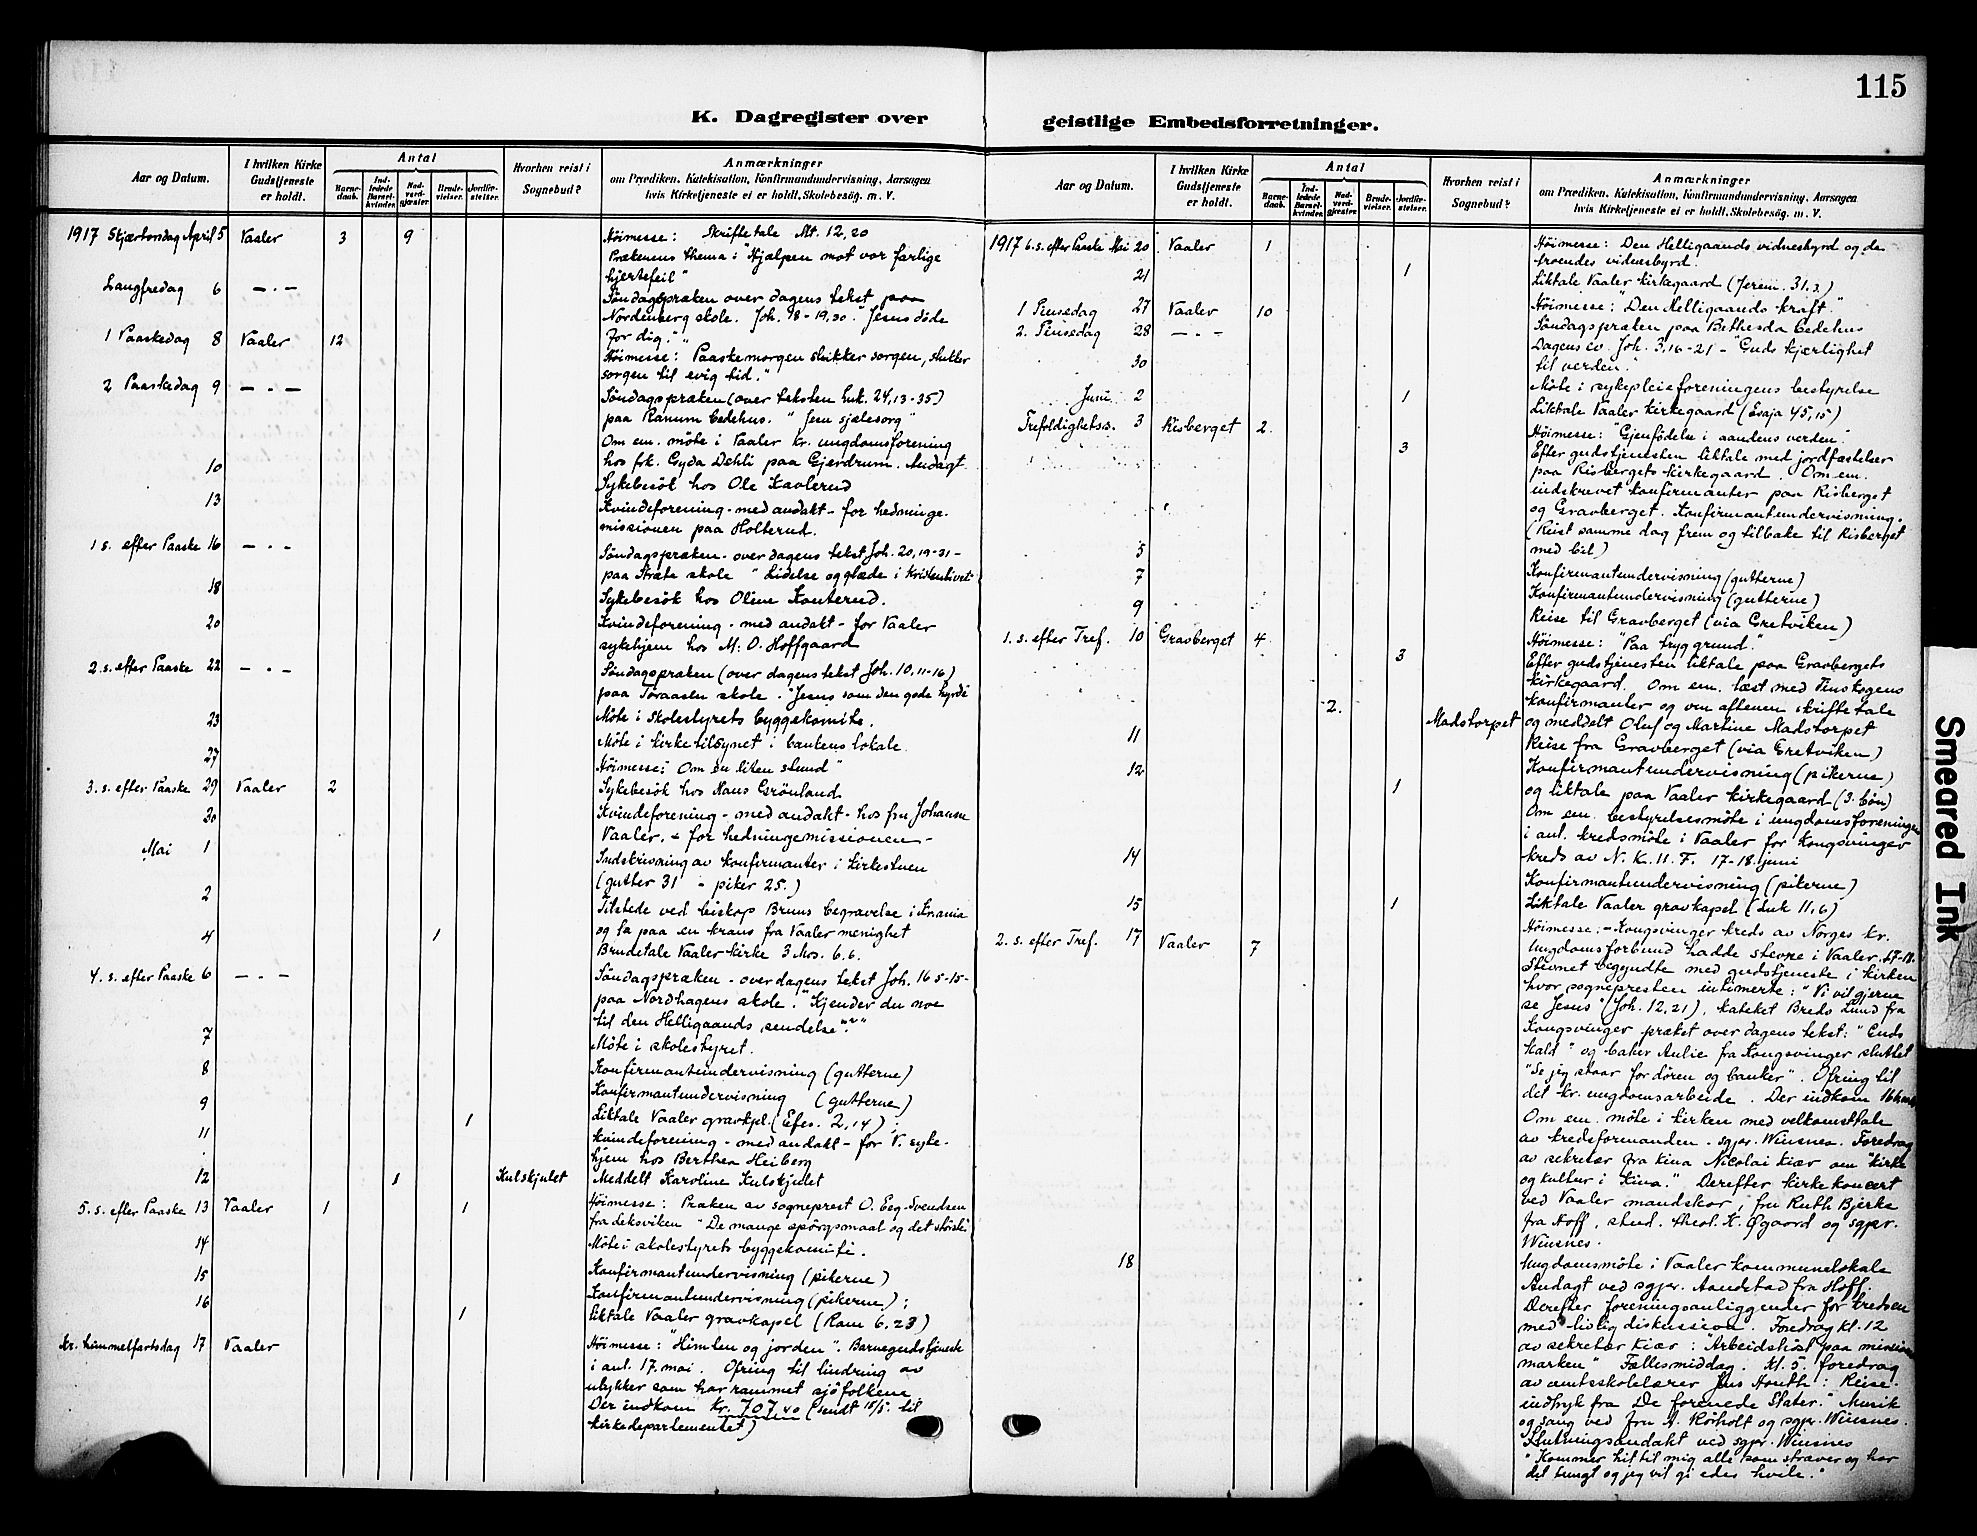 115
K. Dagregister over
geistlige Embedsforretninger.
Aar og Datum.
I hvilken Kirke Gudstjeneste er holdt.
Antal
Barnedaab.
Indledede Barselkvinder.
Nadverdgjæster.
Brudevielser.
Jordfæstelser.
Hvorhen reist i Sognebud?
Anmærkninger
om Prædiken, Katekisation, Konfirmandundervisning, Aarsagen
hvis Kirketjeneste ei er holdt, Skolebesøg, m. V.
1917 Skjærtorsdag April 5 Vaaler 3 9 Høimesse: Skriftetale Mt. 12,20
Prækenens thema: "Hjælpen mot vor farlige
hjertefeil"
Langfredag 6 — " — Søndagspræken over dagens tekst paa
Nordenberg skole. Joh. 18-19,30. "Jesus døde
for dig."
1 Paaskedag 8 Vaaler 12 Høimesse: Paaskemorgen slukker sorgen, slukker
sorgen til evig tid."
2 Paaskedag 9 — " — Søndagspræken (over teksten Luk. 24,13-35)
paa Ranum bedehus. "Jesu sjælesorg"
Om em. møte i Vaaler kr. ungdomsforening
hos frk. Gyda Dehli paa Gjerdrum. Andagt
10 Sykebesøk hos Ole Kavlerud
13 Kvindeforening - med andakt - for hedninge-
missionen paa Holterud.
1 s. efter Paaske 16 — " — Søndagspræken - over dagens tekst Joh. 20,19-31 -
paa Stræte skole "Lidelse og glæde i kristenlivet
18 Sykebesøk hos Oline Konterud.
20 Kvindeforening - med andakt - for Vaaler
sykehjem hos M. O. Hoffgaard
2. s. efter Paaske 22 — " — Søndagspræken (over dagens tekst Joh. 10,11-16)
paa Toraasen skole. "Jesus som den gode hyrde
23 Møte i Skolestyrets byggekomite.
27 Møte i kirketilsynet i bankens lokale.
3. s. efter Paaske 29 Vaaler 2 Høimesse: Om en liten stund"
30 Sykebesøk hos Hans Grønland
Mai 1 Kvindeforening - med andakt - hos fru Johanne
Vaaler. - for hedningemissionen -
2 Indskrivning av konfirmanter i kirkestuen
(gutter 31 - piker 25.)
Tilstede ved biskop Bruns begravelse i Kr.ania
og la paa en krans fra Vaaler menighet
4 1 Brudetale Vaaler kirke 3 Mos. 6.6.
4. s. efter Paaske 6 — " — Søndagspræken - over dagens tekst Joh. 16 5-15 -
paa Nordhagens skole. "Kjender du noe
til den Helligaands sendelse?"
7 Møte i skolestyret.
8 Konfirmantundervisning (gutterne)
9 Konfirmantundervisning (gutterne)
1 Liktale Vaaler gravkpl. (Efes. 2,14);
11 Kvindeforening - med andakt - for V. syke-
hjem hos Berthea Heiberg
12 1 Kulskjulet Meddelt Karoline Kulskjulet
5. s. efter Paaske 13 Vaaler 1 1 Høimesse: Præken av sogneprest O. Eeg-Svendsen
fra Leksviken "De mange spørgsmaal og det største
14 Møte i skolestyrets byggekomité.
15 Konfirmantundervisning (pikerne)
16 Konfirmantundervisning (pikerne);
1 Liktale Vaaler gravkapel (Rom 6,23)
Kr. himmelfartsdag 17 Vaaler Høimesse: "Himlen og jorden". Barnegudstjeneste
i anl. 17. mai. Ofring til lindring av
ulykker som har rammet sjøfolkene
Der indkom kr. 707,40 (sendt 15/5. til
kirkedepartementet)
Aar og Datum.
I hvilken Kirke Gudstjeneste er holdt.
Antal
Barnedaab.
Indledede Barselkvinder.
Nadverdgjæster.
Brudevielser.
Jordfæstelser.
Hvorhen reist i Sognebud?
Anmærkninger
om Prædiken, Katekisation, Konfirmandundervisning, Aarsagen
hvis Kirketjeneste ei er holdt, Skolebesøg, m. V.
1917 6. s. efter Paaske Mai 20 Vaaler 1 Høimesse: Den Helligaands vidnesbyrd og de
troendes vidnesbyrd.
21 1 Liktale Vaaler kirkegaard (Jerem. 31.3)
1 Pinsedag 27 Vaaler 10 Høimesse: "Den Helligaands kraft."
2. Pinsedag 28 — " — Søndagspræken paa Bethesda bedehus
Dagens ev. Joh. 3,16-21 - "Guds kjærlighet
til verden."
30 Møte i sykepleieforeningens bestyrelse
Juni 2 1 Liktale Vaaler kirkegaard (Esaja 45,15)
Trefoldighetss. 3 Risberget 2. Høimesse: "Gjenfødelse i aandens verden".
3 Efter gudstjenesten liktale med jordfæstelser
paa Risbergets kirkegaard. Om em.
indskrevet konfirmanter paa Risberget
og Gravberget. Konfirmantundervisning.
(Reist samme dag frem og tilbake til Risberget
med bil)
5 Konfirmantundervisning (gutterne)
7 Konfirmantundervisning (gutterne)
9 Reise til Gravberget (via Gretviken)
1. s. efter Tref. 10 Gravberget 4 Høimesse: "Paa tryg grund".
3 Efter gudstjenesten liktale paa Gravbergets
kirkegaard. Om em. læst med Finskogens
konfirmanter og om aftenen skriftetale
2. Madstorpet og meddelt Oluf og Martine Madstorpet
11 Reise fra Gravberget (via Gretviken)
12 Konfirmantundervisning (pikerne)
1 og liktale paa Vaaler kirkegaard (3. bøn)
Om em. bestyrelsesmøte i ungdomsforeningen
i anl. kredsmøte i Vaaler for Kongsvinger
kreds av N. K. U. F. 17-18. juni
14 Konfirmantundervisning (pikerne)
15 1 Liktale Vaaler gravkapel (Luk 11,6)
2. s. efter Tref. 17 Vaaler 7 Høimesse: - Kongsvinger kreds av Norges kr.
Ungdomsforbund hadde stevne i Vaaler 17-18.
Stevnet begyndte med gudstjeneste i kirken
hvor sognepresten intimerte: "Vi vil gjerne
se Jesus" (Joh. 12,21), kateket Breds Lund fra
Kongsvinger præket over dagens tekst: "Guds
kald" og baker Aulie fra Kongsvinger sluttet
"Se jeg staar for døren og banker". Ofring til
det kr. ungdomsarbeide. Der indkom
Om em. møte i kirken med velkomsttale
av kredsformanden sgpr. Winsnes. Foredrag
av sekretær fra Kina Nicolai Kiær om "Kirke
og kultur i Kina." Derefter kirkekoncert
ved Vaaler mandskor, fru Ruth Bjerke
fra Hoff, stud. theol. K. Øgaard og sgpr.
Winsnes.
18 Ungdomsmøte i Vaaler kommunelokale
Andagt ved sgpr. Aandstad fra Hoff.
Derefter foreningsanliggender for kredsen
med livlig diskussion. Foredrag kl. 12
av sekretær Kiær: "Arbeidshøst paa missions
marken" Fællesmiddag. Kl. 5 foredrag
av amtsskolelærer Jens Houth: Reise-
indtryk fra De forenede Stater." Musik
og sang ved fru A. Rørholt og sgpr. Winsnes.
Slutningsandakt ved sgpr. Winsnes
"Kommer hit til mig alle som stræver og har
det tungt og jeg vil gi eder hvile."
Smeared Ink